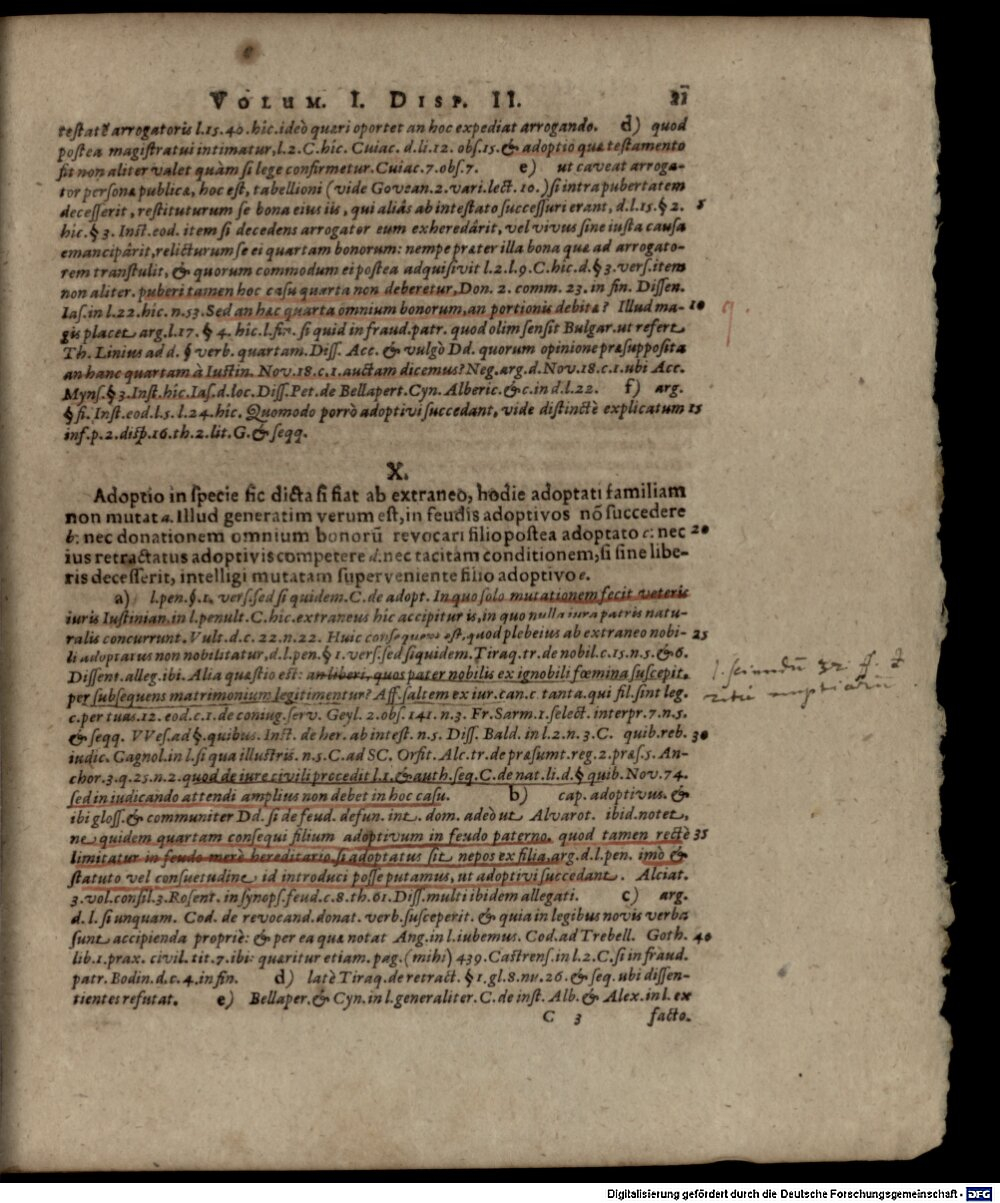 VOLUM. I. DISP. II. 21
testatẽ arrogatoris l.15. 40. hic. ideò quæri oportet an hoc expediat arrogando. d) quod
postea magistratui intimatur, l.2. C. hic. Cuiac. d. li. 12. obs. 15. & adoptio quæ testamento
fit non aliter valet quàm si lege confirmetur. Cuiac. 7. obs. 7. e) ut caveat arroga-
tor personæ publicæ, hoc est, tabellioni (vide Govean. 2. vari. lect. 10.) si intra pubertatem
decesserit, restituturum se bona eius iis, qui aliâs ab intestato successuri erant, d. l. 15. § 2. 5
hic. § 3. Inst. eod. item si decedens arrogator eum exheredârit, vel vivus sine iusta causa
emancipârit, relicturum se ei quartam bonorum: nempe præter illa bona quæ ad arrogato-
rem transtulit, & quorum commodum ei postea adquisivit l. 2. l. 9. C. hic. d. § 3. vers. item
non aliter. puberi tamen hoc casu quarta non deberetur, Don. 2. comm. 23. in fin. Dissen.
Ias. in l. 22. hic. n. 53. Sed an hæc quarta omnium bonorum, an portionis debitæ? Illud ma- 10
gis placet arg. l. 17. § 4. hic. l. fin. si quid in fraud. patr. quod olim sensit Bulgar. ut refert
Th. Linius ad d. § verb. quartam. Diss. Acc. & vulgò Dd. quorum opinione præsupposita
an hanc quartam à Iustin. Nov. 18. c. 1. auctam dicemus? Neg. arg. d. Nov. 18. c. 1. ubi Acc.
Myns. § 3. Inst. hîc. Ias. d. loc. Diss. Pet. de Bellapert. Cyn. Alberic. & c. in d. l. 22. f) arg.
§ fi. Inst. eod. l. 5. l. 24. hic. Quomodo porrò adoptivi succedant, vide distinctè explicatum 15
inf. p. 2. disp. 16. th. 2. lit. G. & seqq.
X.
Adoptio in specie sic dicta si fiat ab extraneo, hodie adoptati familiam
non mutat a. Illud generatim verum est, in feudis adoptivos nõ succedere
b: nec donationem omnium bonorũ revocari filio postea adoptato c: nec 20
ius retractatus adoptivis competere d: nec tacitam conditionem, si sine libe-
ris decesserit, intelligi mutatam superveniente filio adoptivo e.
a) l. pen. §. 1. vers. sed si quidem. C. de adopt. In quo solo mutationem fecit veteris
iuris Iustinian. in l. penult. C. hic. extraneus hic accipitur is, in quo nulla iura patris natu-
ralis concurrunt. Vult. d. c. 22. n. 22. Huic consequens est, quod plebeius ab extraneo nobi- 25
li adoptatus non nobilitatur, d. l. pen. § 1. vers. sed siquidem. Tiraq. tr. de nobil. c. 15. n. 5. & 6.
Dissent. alleg. ibi. Alia quæstio est: an liberi, quos pater nobilis ex ignobili fœmina suscepit,
per subsequens matrimonium legitimentur? Aff. saltem ex iur. can. c. tanta. qui fil. sint leg.
c. per tuas. 12. eod. c. 1. de coniug. serv. Geyl. 2. obs. 141. n. 3. Fr. Sarm. 1. select. interpr. 7. n. 5.
& seqq. VVes. ad §. quibus. Inst. de her. ab intest. n. 5. Diss. Bald. in l. 2. n. 3. C. quib. reb. 30
iudic. Gagnol. in l. si qua illustris. n. 5. C. ad SC. Orfit. Alc. tr. de præsumt. reg. 2. præs. 5. An-
chor. 3. q. 25. n. 2. quod de iure civili procedit l. 1. & auth. seq. C. de nat. li. d. § quib. Nov. 74.
sed in iudicando attendi amplius non debet in hoc casu. b) cap. adoptivus. &
ibi gloss. & communiter Dd. si de feud. defun. int. dom. adeò ut Alvarot. ibid. notet,
ne quidem quartam consequi filium adoptivum in feudo paterno. quod tamen rectè 35
limitatur in feudo merè hereditario, si adoptatus sit nepos ex filia, arg. d. l. pen. imò &
statuto vel consuetudine id introduci posse putamus, ut adoptivi succedant. Alciat.
3. vol. consil. 3. Rosent. in synops. feud. c. 8. th. 61. Diss. multi ibidem allegati. c) arg.
d. l. si unquam. Cod. de revocand. donat. verb. susceperit. & quia in legibus novis verba
sunt accipienda propriè: & per ea quæ notat Ang. in l. iubemus. Cod. ad Trebell. Goth. 40
lib. 1. prax. civil. tit. 7. ibi: quæritur etiam. pag. (mihi) 439. Castrens. in l. 2. C. si in fraud.
patr. Bodin. d. c. 4. in fin. d) latè Tiraq. de retract. § 1. gl. 8. nu. 26. & seq. ubi dissen-
tientes refutat. e) Bellaper. & Cyn. in l. generaliter. C. de inst. Alb. & Alex. in l. ex
C 3 facto.
Digitalisierung gefördert durch die Deutsche Forschungsgemeinschaft - DFG